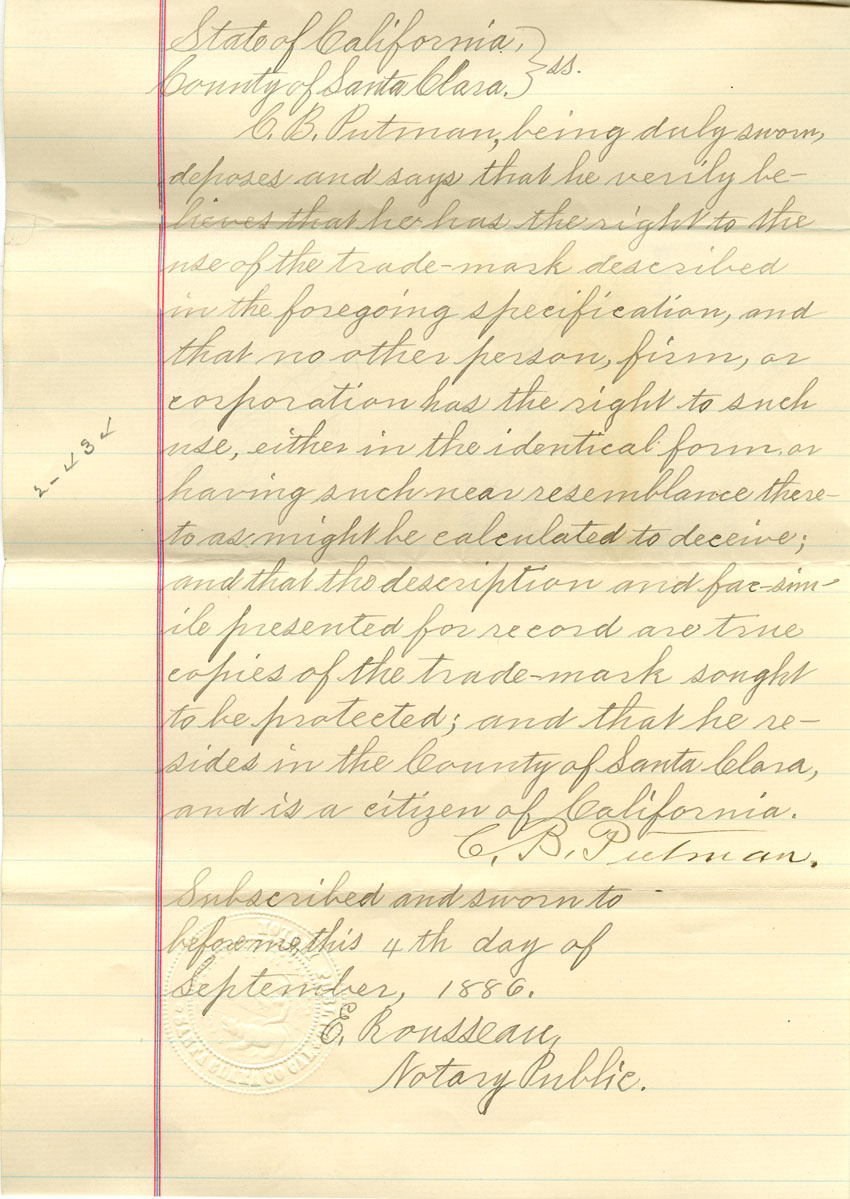 State of California, } ss.
County of Santa Clara.
C. B. Putman, being duly sworn,
deposes and says that he verily be-
lieves that he has the right to the
use of the trade-mark described
in the foregoing specification, and
that no other person, firm, or
corporation has the right to such
use, either in the identical form or
having such near resemblance there-
to as might be calculated to deceive;
and that the description and fac-sim-
ile presented for record are true
copies of the trade-mark sought
to be protected; and that he re-
sides in the County of Santa Clara,
and is a citizen of California.
C. B. Putman.
Subscribed and sworn to
before me, this 4th day of
September, 1886.
E. Rousseau,
Notary Public.
SANTA CLARA CO CAL